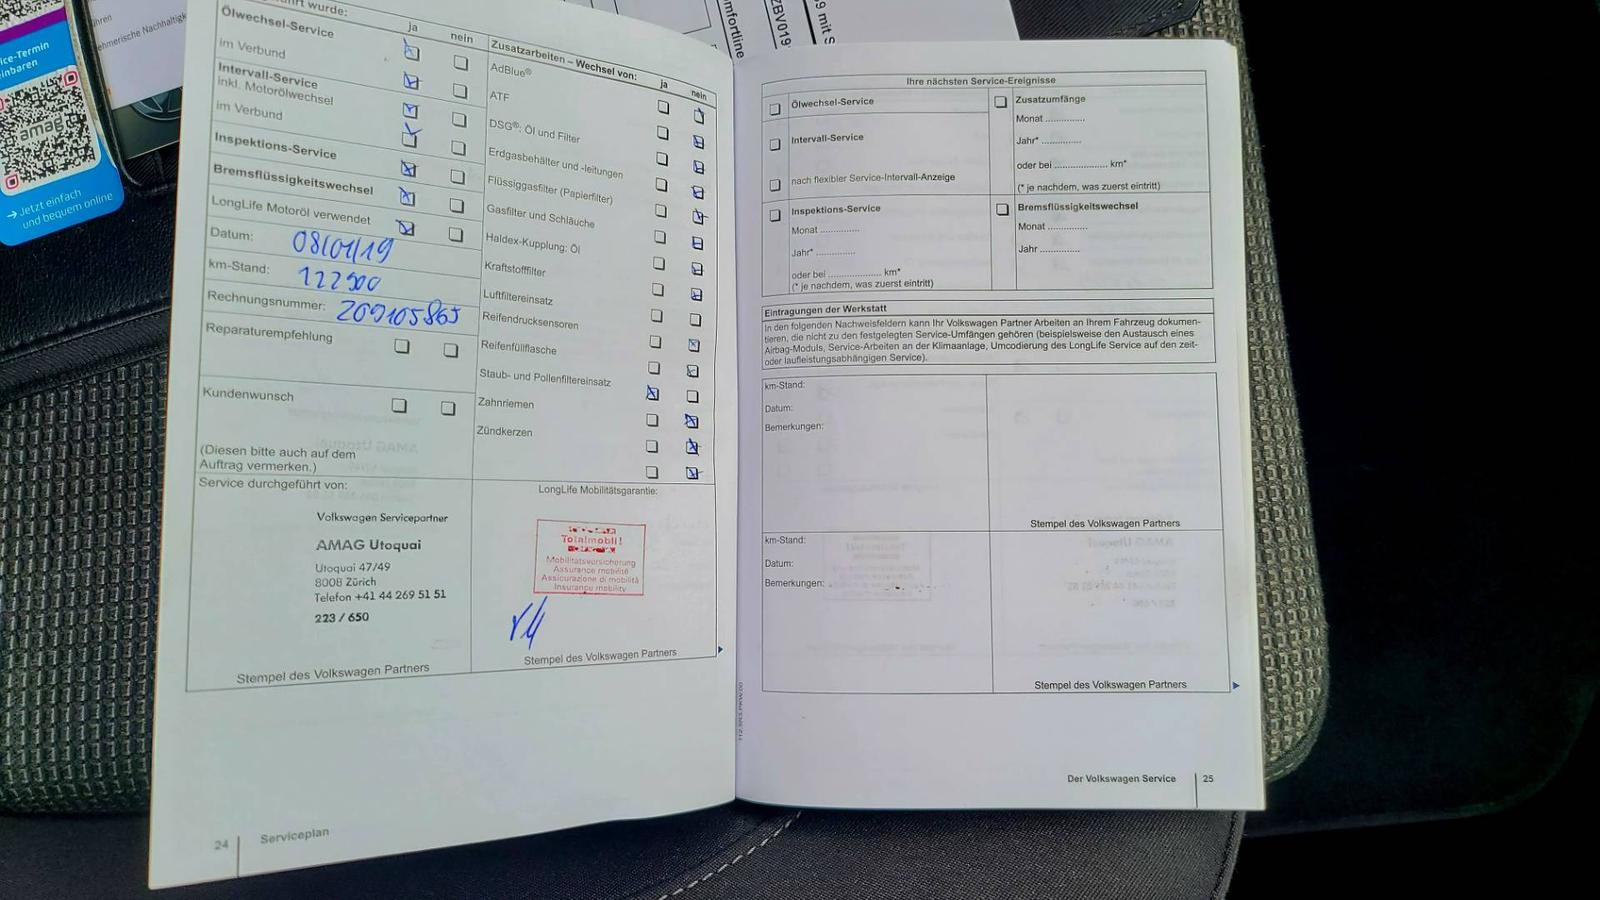 ce-Termin
inbaren
amag
→ Jetzt einfach
und bequem online
ehmerische Nachhaltigk
mfortline
ZBV019
9 mit S
führt wurde:
ja
nein
Ölwechsel-Service
im Verbund
Intervall-Service
inkl. Motorölwechsel
im Verbund
Inspektions-Service
Bremsflüssigkeitswechsel
LongLife Motoröl verwendet
Datum: 08/01/19
km-Stand: 122900
Rechnungsnummer: 209105865
Reparaturempfehlung
Kundenwunsch
(Diesen bitte auch auf dem
Auftrag vermerken.)
Zusatzarbeiten – Wechsel von:
ja
nein
AdBlue®
ATF
DSG®: Öl und Filter
Erdgasbehälter und -leitungen
Flüssiggasfilter (Papierfilter)
Gasfilter und Schläuche
Haldex-Kupplung: Öl
Kraftstofffilter
Luftfiltereinsatz
Reifendrucksensoren
Reifenfüllflasche
Staub- und Pollenfiltereinsatz
Zahnriemen
Zündkerzen
Service durchgeführt von:
Volkswagen Servicepartner
AMAG Utoquai
Utoquai 47/49
8008 Zürich
Telefon +41 44 269 51 51
223 / 650
Stempel des Volkswagen Partners
LongLife Mobilitätsgarantie:
Totalmobil!
Mobilitätsversicherung
Assurance mobilité
Assicurazione di mobilità
Insurance mobility
Stempel des Volkswagen Partners
24
Serviceplan
Ihre nächsten Service-Ereignisse
Ölwechsel-Service
Intervall-Service
nach flexibler Service-Intervall-Anzeige
Zusatzumfänge
Monat ..............
Jahr* ..............
oder bei .................... km*
(* je nachdem, was zuerst eintritt)
Inspektions-Service
Monat ..............
Jahr* ..............
oder bei .................... km*
(* je nachdem, was zuerst eintritt)
Bremsflüssigkeitswechsel
Monat ..............
Jahr ..............
Eintragungen der Werkstatt
In den folgenden Nachweisfeldern kann Ihr Volkswagen Partner Arbeiten an Ihrem Fahrzeug dokumen-
tieren, die nicht zu den festgelegten Service-Umfängen gehören (beispielsweise den Austausch eines
Airbag-Moduls, Service-Arbeiten an der Klimaanlage, Umcodierung des LongLife Service auf den zeit-
oder laufleistungsabhängigen Service).
km-Stand:
Datum:
Bemerkungen:
Stempel des Volkswagen Partners
km-Stand:
Datum:
Bemerkungen:
Stempel des Volkswagen Partners
Der Volkswagen Service
25